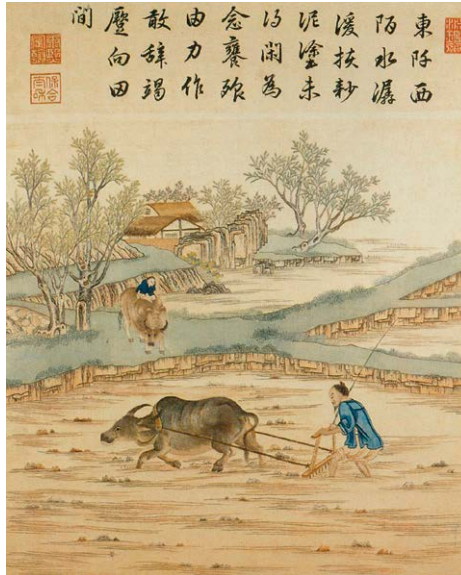 東阡西
陌水潺
湲扶耖
泥塗未
得閑為
念饔飧
由力作
敢辭竭
蹷向田
間